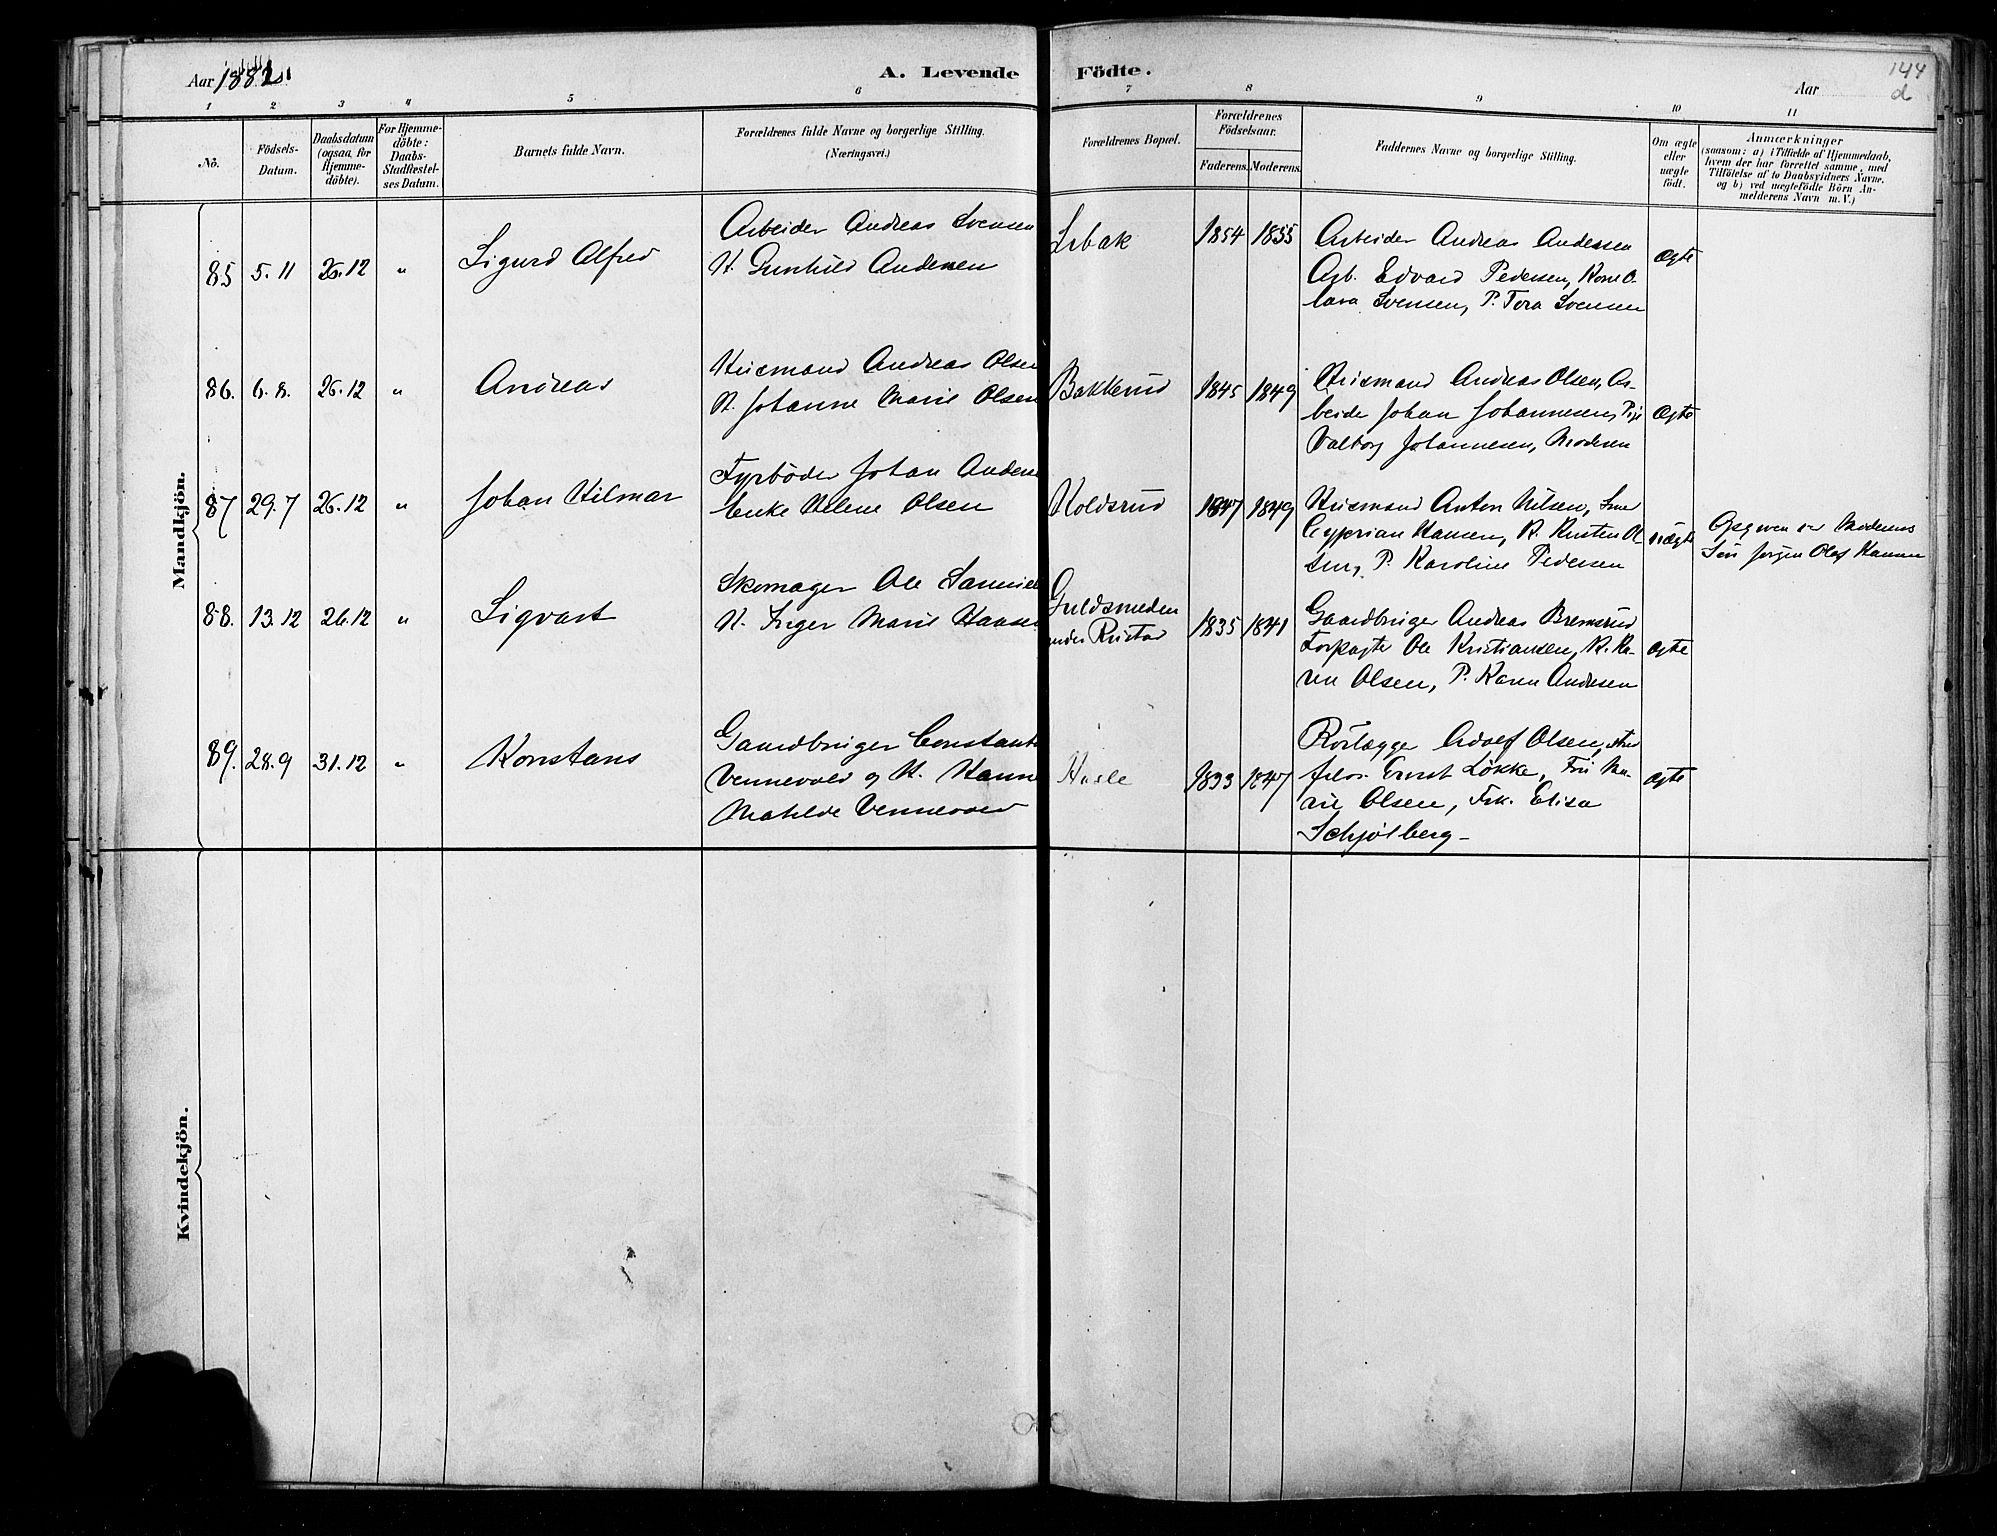 Aar 1882.
A. Levende Födte.
Aar
144
d
1 2 3 4 5 6 7 8 9 10 11
No.
Födsels-
Datum.
Daabsdatum
(ogsaa for
Hjemme-
döbte).
For Hjemme-
döbte:
Daabs-
Stadfæstel-
ses Datum.
Barnets fulde Navn.
Forældrenes fulde Navne og borgerlige Stilling.
(Næringsvei.)
Forældrenes Bopæl.
Forældrenes
Födselsaar.
Faderens. Moderens.
Faddernes Navne og borgerlige Stilling.
Om ægte
eller
uægte
födt.
Anmærkninger
(saasom: a) i Tilfælde af Hjemmedaab,
hvem der har forrettet samme, med
Tilföielse af to Daabsvidners Navne.
og b) ved uægtefödte Börn An-
melderens Navn m. V.)
Mandkjön.
85 5.11 26.12 " Sigurd Alfred
Arbeider Andreas Svensen
H. Gunhild Andersen
1854 1855
Arbeider Andreas Andersen
Arb. Edvard Pedersen, Kone O-
lava Svensen, P. Tora Svensen
ægte
86. 6.8. 26.12 " Andreas
Husmand Andreas Olsen
H. Johanne Marie Olsen
Bakkerud
1845 1849
Husmand Andreas Olsen, Ar-
beider Johan Johannesen, Pige
Valborg Johannesen, Moderen
ægte
87 29.7 26.12 " Johan Hilmar
Fyrböder Johan Anders
Enke Helene Olsen
Holdsrud
1847 1849
Husmand Anton Nilsen,
Cyprian Hansen, K. Kirsten Ol-
sen, P. Karoline Pedersen
uægte
Opgiven er Moderens
Sön Jørgen Olaf Hansen
88. 13.12 26.12 " Sigvart
Skomager Ole Samuels
H. Inger Marie Hansen
Guldsmeden
under Rustad
1835 1841
Gaardbruger Andreas Bremsrud
Forpagter Ole Kristiansen, K. Ka-
ren Olsen, P. Karen Andersen
ægte
89. 28.9 31.12 " Konstans
Gaardbruger Constans
Vennevold og H. Hanne
Mathilde Vennevold
Hasle
1833 1847
Rörlægger Adolf Olsen, Stud
filos. Ernst Løkke, Fru Ma-
rie Olsen, Frk. Elisa
Schjølberg -
ægte
Kvindekjön.